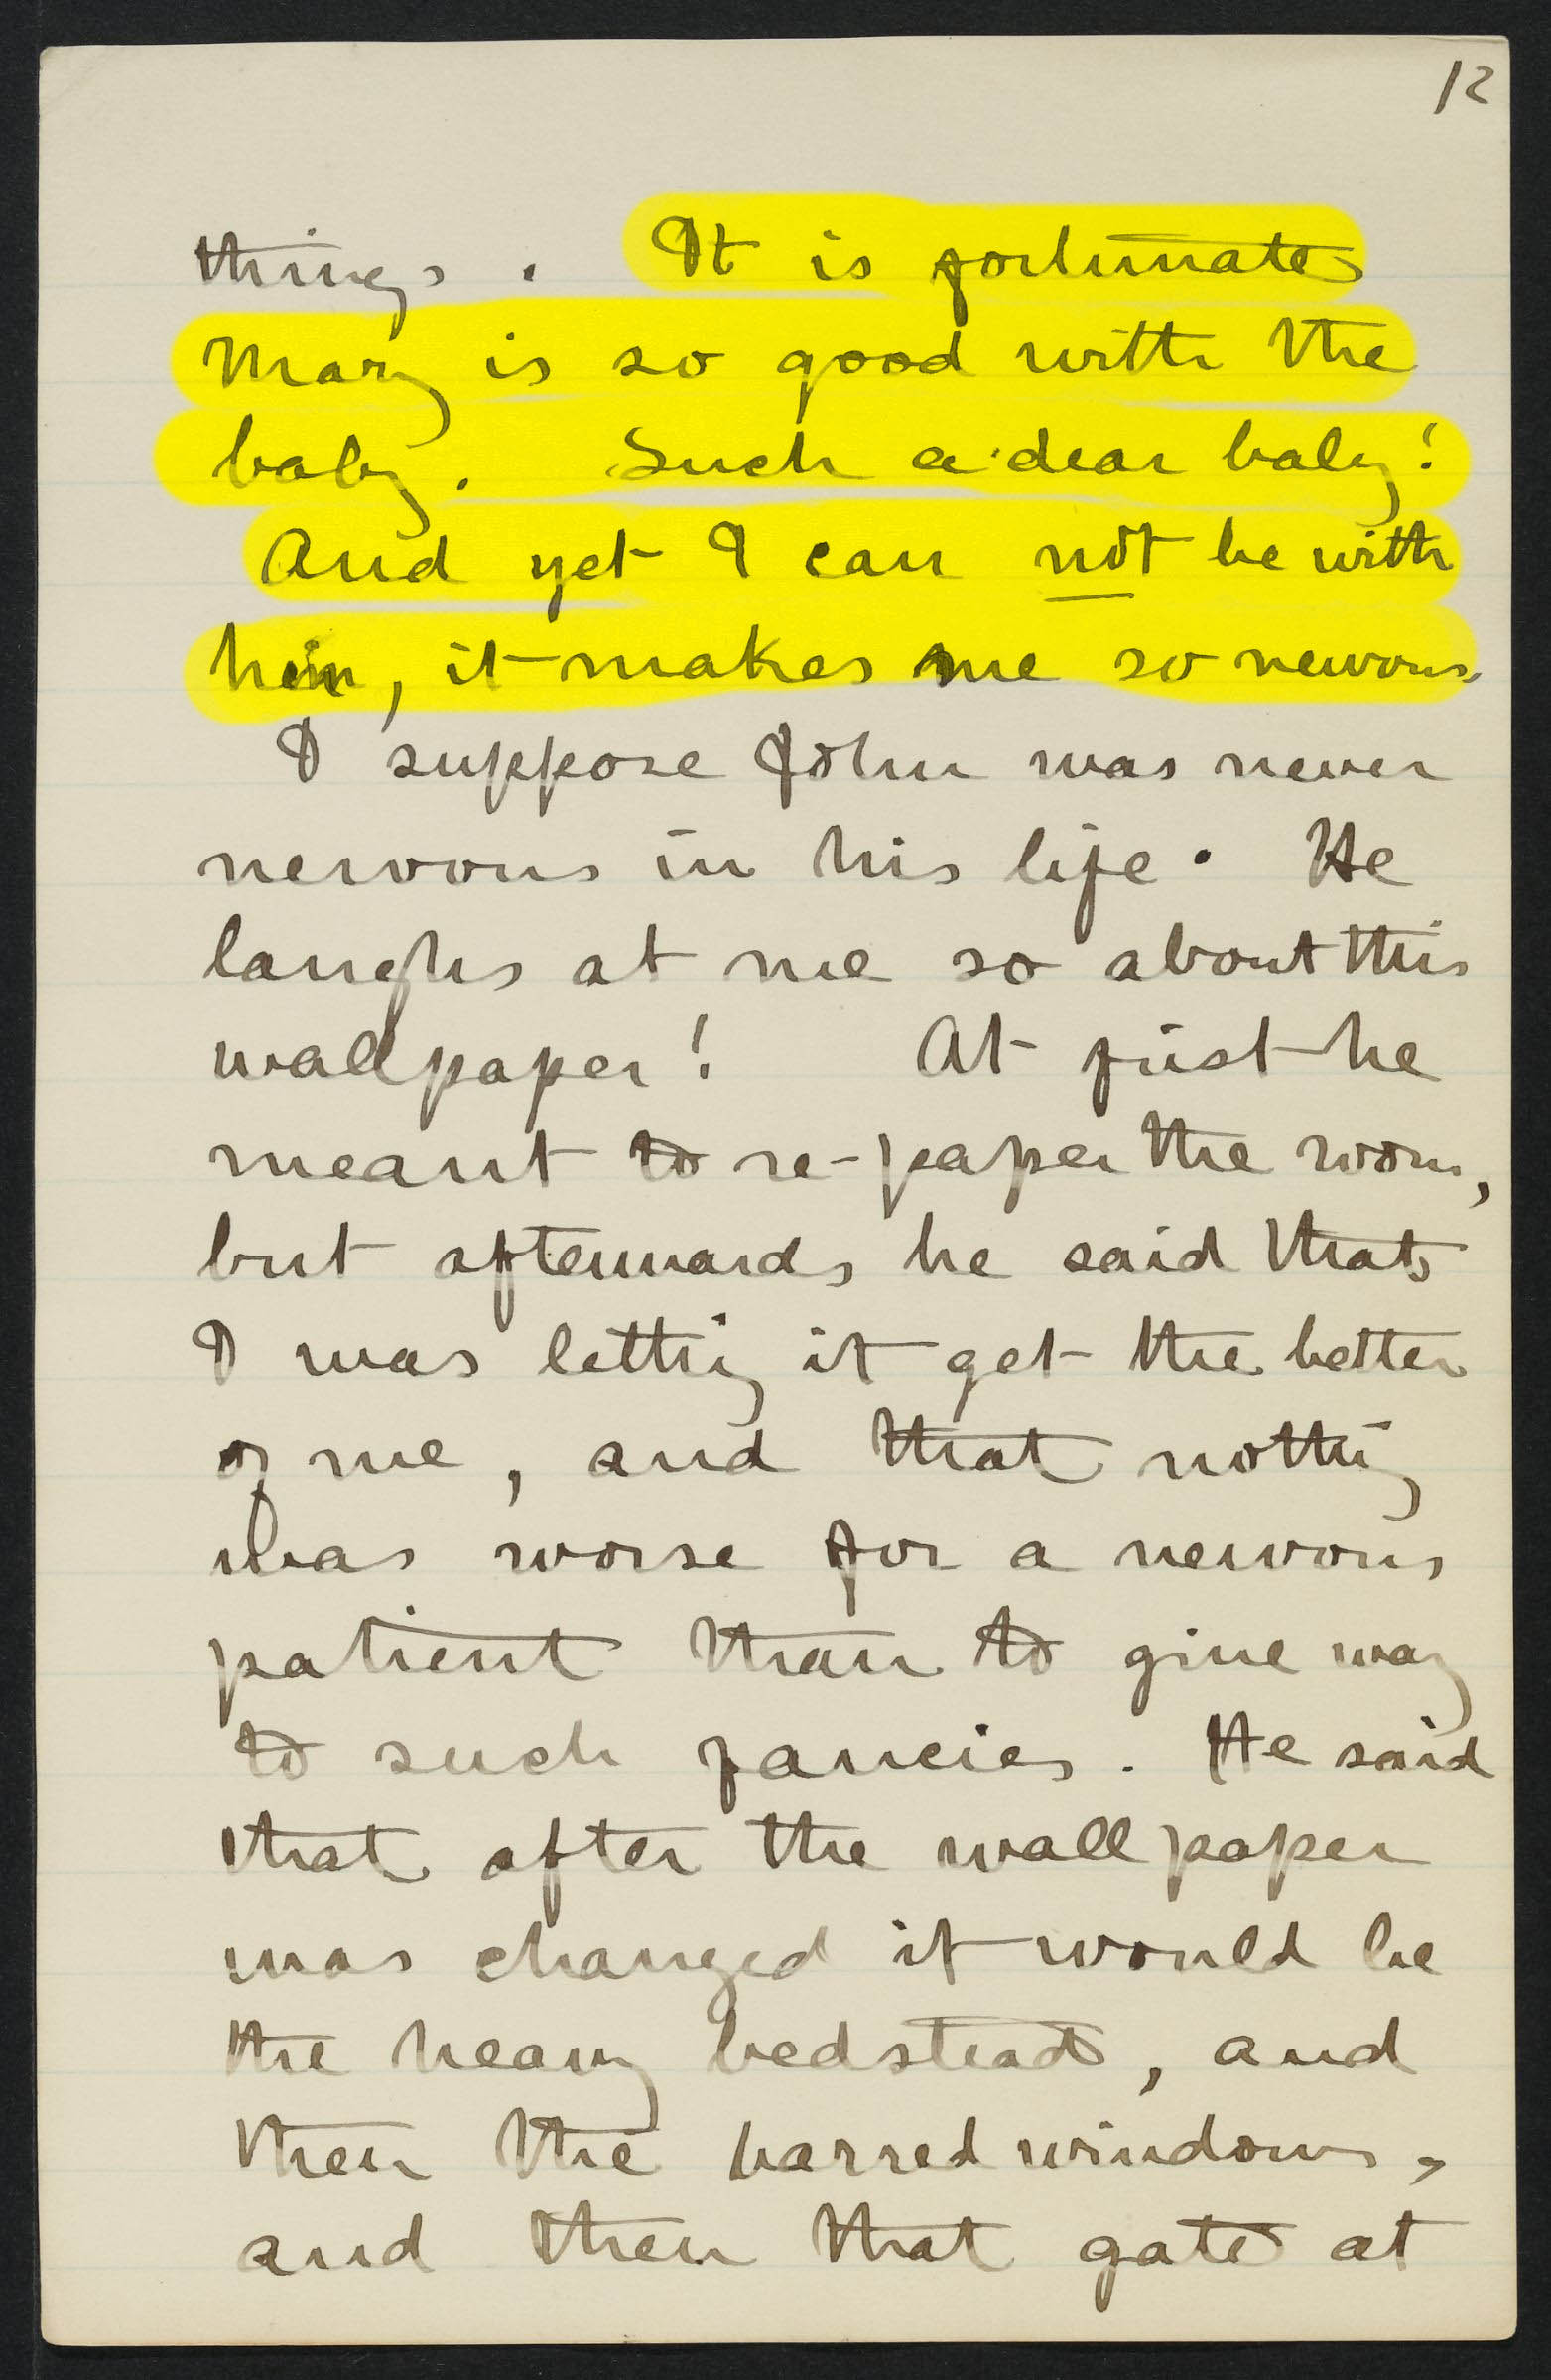 12
things. It is fortunate
Mary is so good with the
baby. Such a dear baby!
And yet I can not be with
him, it makes me so nervous.
I suppose John was never
nervous in his life. He
laughs at me so about this
wallpaper! At first he
meant to re-paper the room,
but afterwards he said that
I was letting it get the better
of me, and that nothing
was worse for a nervous
patient than to give way
to such fancies. He said
that after the wall paper
was changed it would be
the heavy bedstead, and
then the barred windows,
and then that gate at